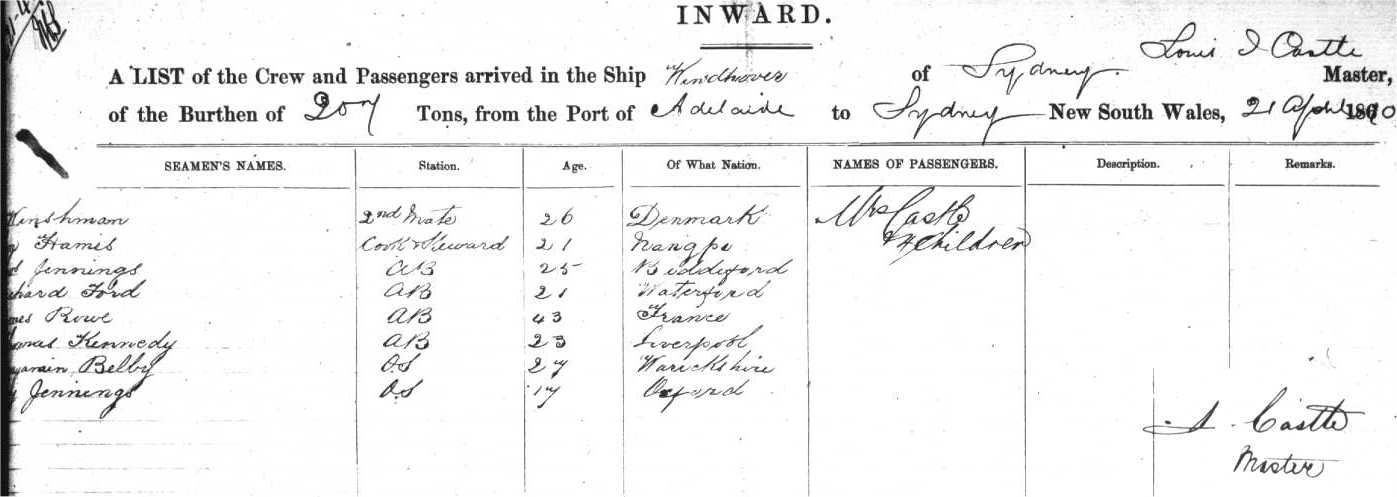 INWARD.
Louis I Castle
A LIST of the Crew and Passengers arrived in the Ship Windhover of Sydney. Master,
of the Burthen of 207 Tons, from the Port of Adelaide to Sydney New South Wales, 21 April 1870
SEAMEN'S NAMES. Station. Age. Of What Nation. NAMES OF PASSENGERS. Description. Remarks.
Hinshman 2nd Mate 26 Denmark Mrs Castle
Hamis Cook & Steward 21 Ningpo & 4 Children
Jennings AB 25 Biddeford
chard Ford AB 21 Waterford
mes Rowe AB 43 France
Kennedy AB 23 Liverpool
jamin Belby OS 27 Warickshire
Jennings OS 17 Oxford
Castle
Master